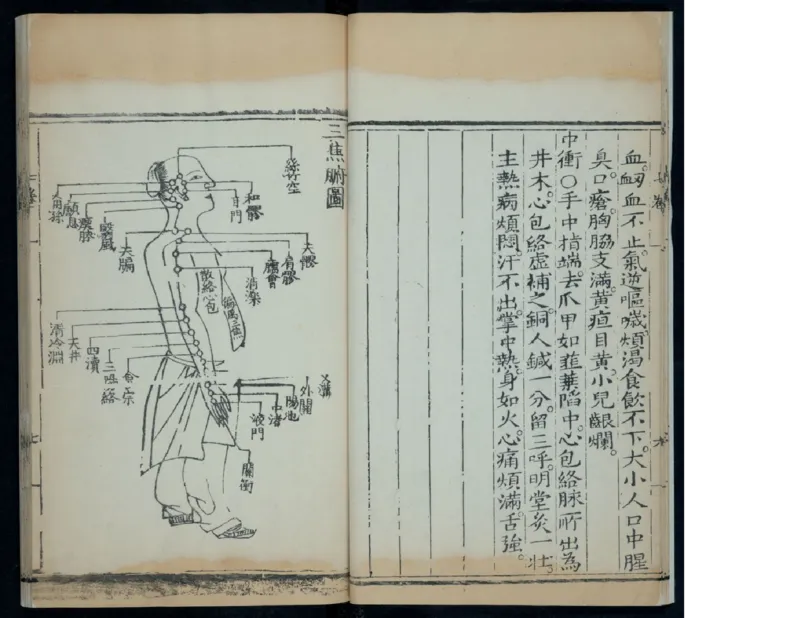 血。衂血不止。氣逆嘔噦。煩渴食飲不下。大小人口中腥
臭。口瘡。胸脇支滿。黃疸目黃。小兒齦爛。
中衝〇手中指端。去爪甲如韭葉陷中。心包絡脉所出為
井木。心包絡虛補之。銅人鍼一分。留三呼。明堂灸一壮。
主熱病煩悶。汗不出。掌中熱。身如火。心痛煩滿。舌強。
三焦腑圖
絲竹空
和髎
耳門
角孫
顱息
瘈脉
翳風
天牖
天髎
肩髎
臑會
消濼
散絡心包
清冷淵
天井
四瀆
三陽絡
會宗
支溝
外關
陽池
中渚
液門
關衝